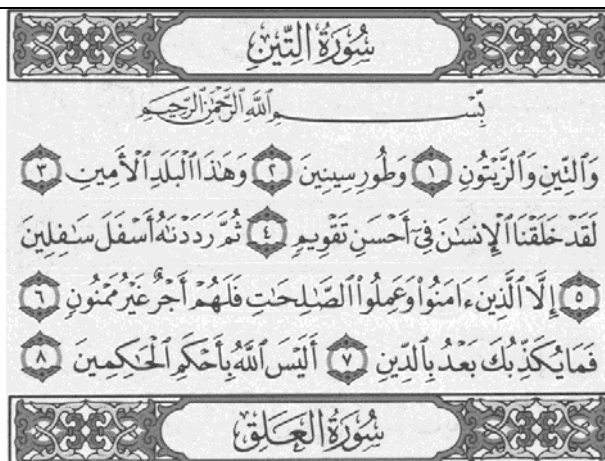 سُورَةُ التِّينِ
بِسْمِ اللَّهِ الرَّحْمَٰنِ الرَّحِيمِ
وَالتِّينِ وَالزَّيْتُونِ ١ وَطُورِ سِينِينَ ٢ وَهَٰذَا الْبَلَدِ الْأَمِينِ ٣
لَقَدْ خَلَقْنَا الْإِنسَٰنَ فِىٓ أَحْسَنِ تَقْوِيمٍ ٤ ثُمَّ رَدَدْنَٰهُ أَسْفَلَ سَٰفِلِينَ
٥ إِلَّا الَّذِينَ ءَامَنُوا۟ وَعَمِلُوا۟ الصَّٰلِحَٰتِ فَلَهُمْ أَجْرٌ غَيْرُ مَمْنُونٍ ٦
فَمَا يُكَذِّبُكَ بَعْدُ بِالدِّينِ ٧ أَلَيْسَ اللَّهُ بِأَحْكَمِ الْحَٰكِمِينَ ٨
سُورَةُ الْعَلَقِ